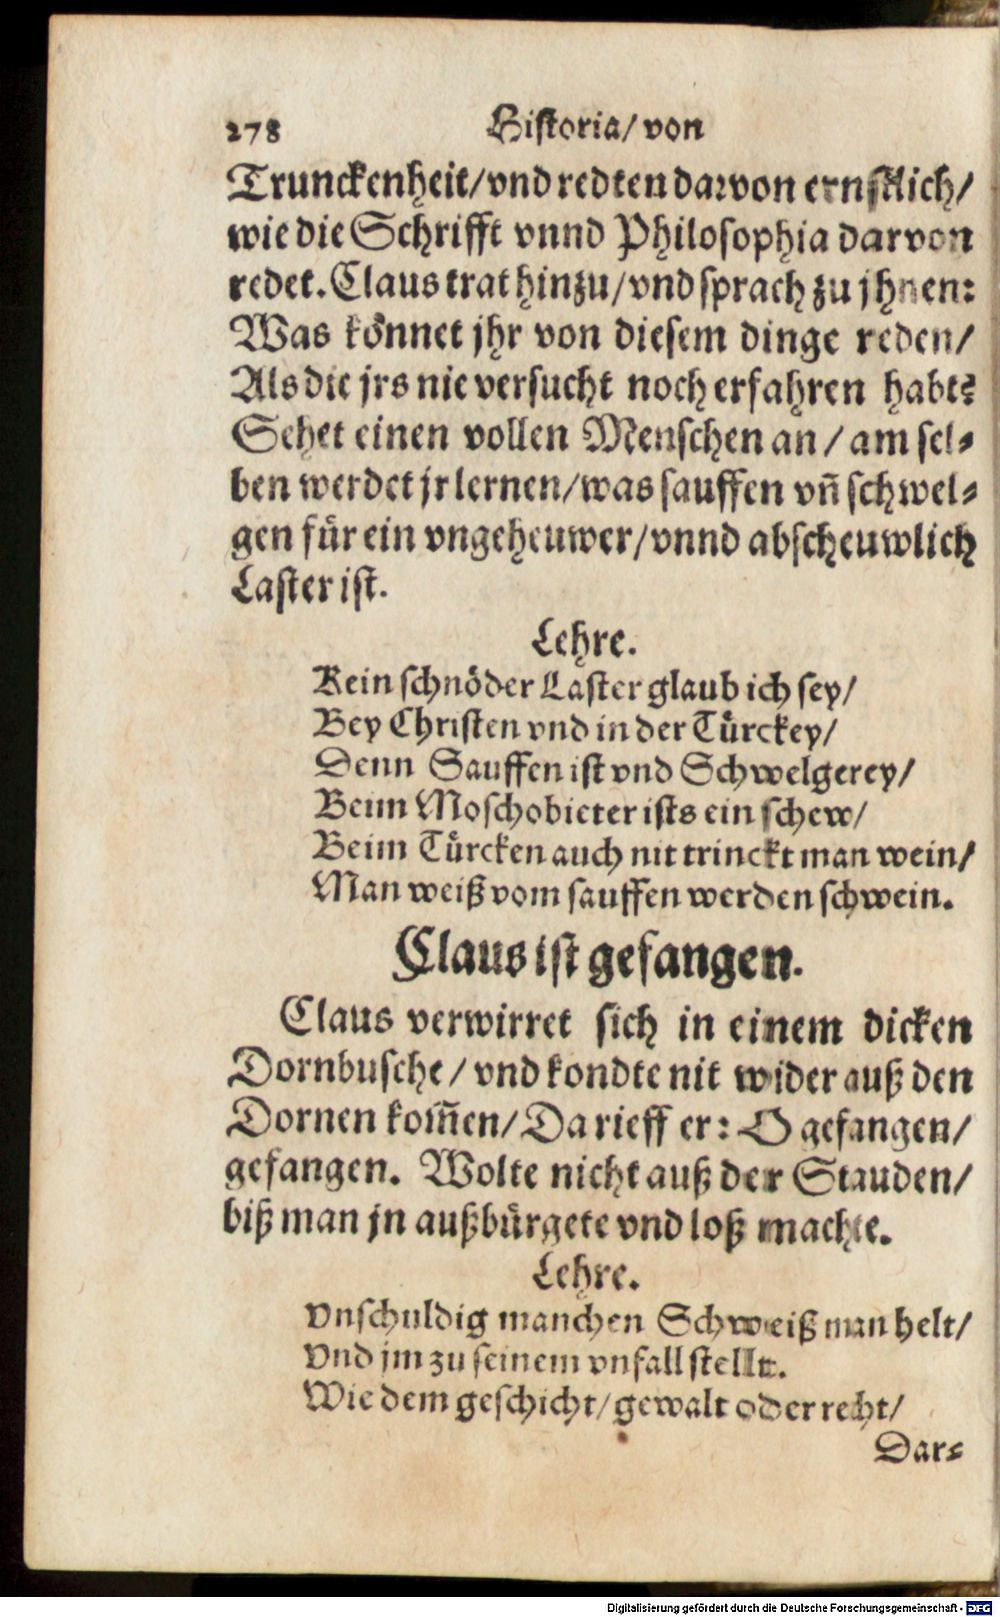 278 Historia/ von
Trunckenheit/ vnd redten darvon ernstlich/
wie die Schrifft vnnd Philosophia darvon
redet. Claus trat hinzu/ vnd sprach zu jhnen:
Was könnet jhr von diesem dinge reden/
Als die jrs nie versucht noch erfahren habt?
Sehet einen vollen Menschen an/ am sel-
ben werdet jr lernen/ was sauffen vñ schwel-
gen für ein vngeheuwer/ vnnd abscheuwlich
Laster ist.
Lehre.
Kein schnöder Laster glaub ich sey/
Bey Christen vnd in der Türckey/
Denn Sauffen ist vnd Schwelgerey/
Beim Moschobieter ists ein schew/
Beim Türcken auch nit trinckt man wein/
Man weiß vom sauffen werden schwein.
Claus ist gefangen.
Claus verwirret sich in einem dicken
Dornbusche/ vnd kondte nit wider auß den
Dornen kom̃en/ Da rieff er: O gefangen/
gefangen. Wolte nicht auß der Stauden/
biß man jn außbürgete vnd loß machte.
Lehre.
Vnschuldig manchen Schweiß man helt/
Vnd jm zu seinem vnfall stellt.
Wie dem geschicht/ gewalt oder recht/
Dar-
Digitalisierung gefördert durch die Deutsche Forschungsgemeinschaft - DFG